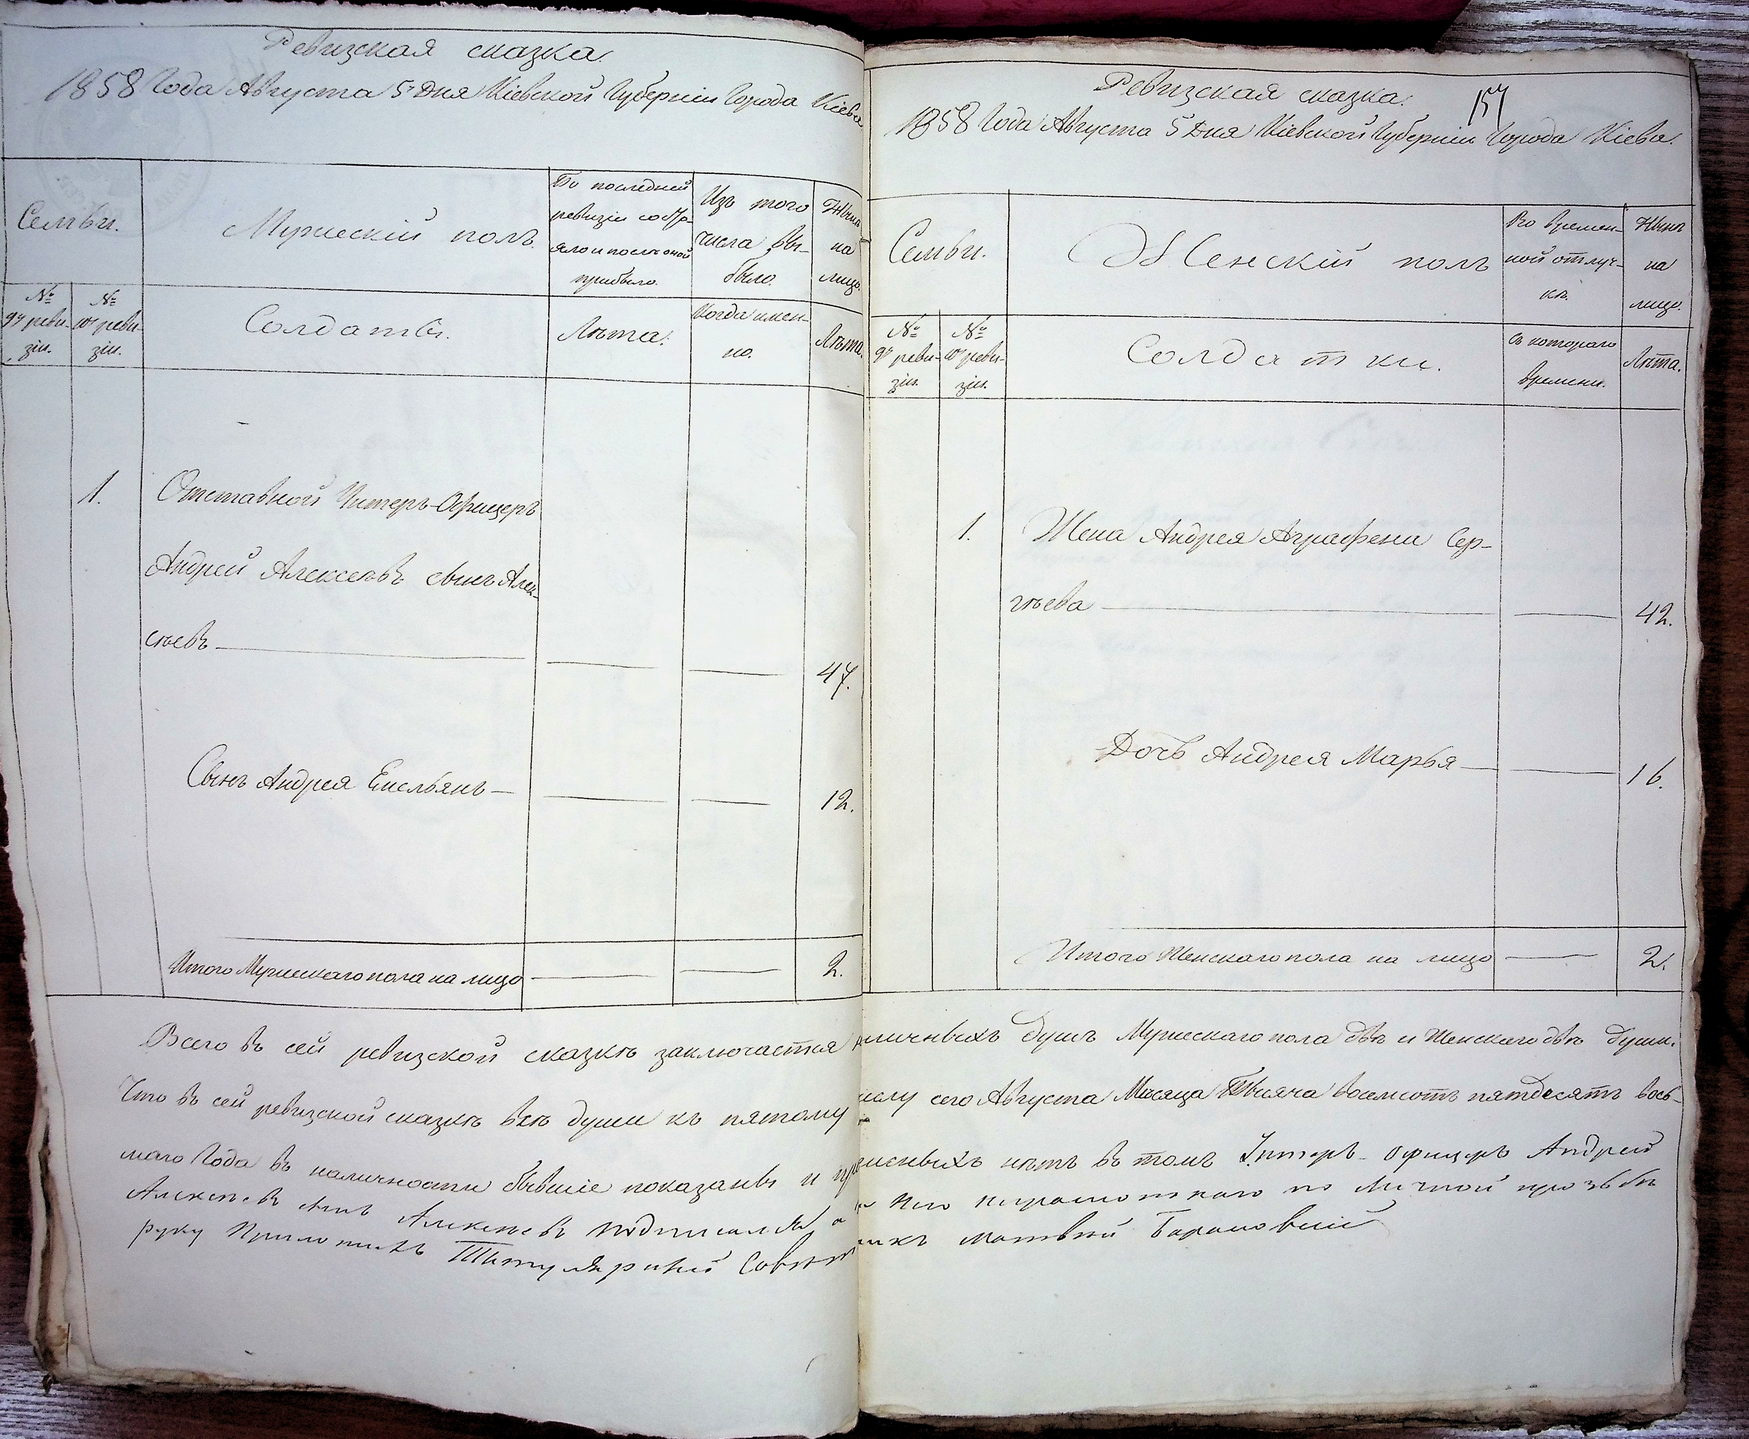 Ревизская сказка
1858 Года Августа 5 Дня Кіевской Губерніи Города Кіева
Семьи.
Мужескій полъ
По послѣдней
ревизіи состо-
яло и послѣ оной
прибыло.
Изъ того
числа вы-
было.
Нынѣ
на
лицо.
№
9й реви-
зіи.
№
10й реви-
зіи.
Солдаты.
Лѣта.
Когда имен-
но.
Лѣта.
1.
Отставной Унтеръ-Офицеръ
Андрей Алексѣевъ сынъ Алек-
сѣевъ
47.
Сынъ Андрея Емельянъ
12.
Итого Мужескаго пола на лицо
2.
Ревизская сказка.
157
1858 Года Августа 5 Дня Кіевской Губерніи Города Кіева.
Семьи.
Женскій полъ
Во времен-
ной отлуч-
кѣ.
Нынѣ
на
лицо.
№
9й реви-
зіи.
№
10й реви-
зіи.
Солдатки.
Съ котораго
времени.
Лѣта.
1.
Жена Андрея Аграфена Сер-
гѣева
42.
Дочь Андрея Марья
16.
Итого Женскаго пола на лицо
2.
Всего въ сей ревизской сказкѣ заключается наличныхъ душъ Мужескаго пола двѣ и Женскаго двѣ души.
Что въ сей ревизской сказкѣ всѣ души къ пятому числу сего Августа Мѣсяца Тысяча восемсотъ пятдесятъ вось-
маго Года въ наличности бывшіе показаны и нѣтъ въ томъ Унтеръ-офицеръ Андрей
Алексѣевъ сынъ Алексѣевъ подписался а неграмотнаго по личной прозьбѣ
руку приложилъ Титулярный Совѣтникъ Матвей